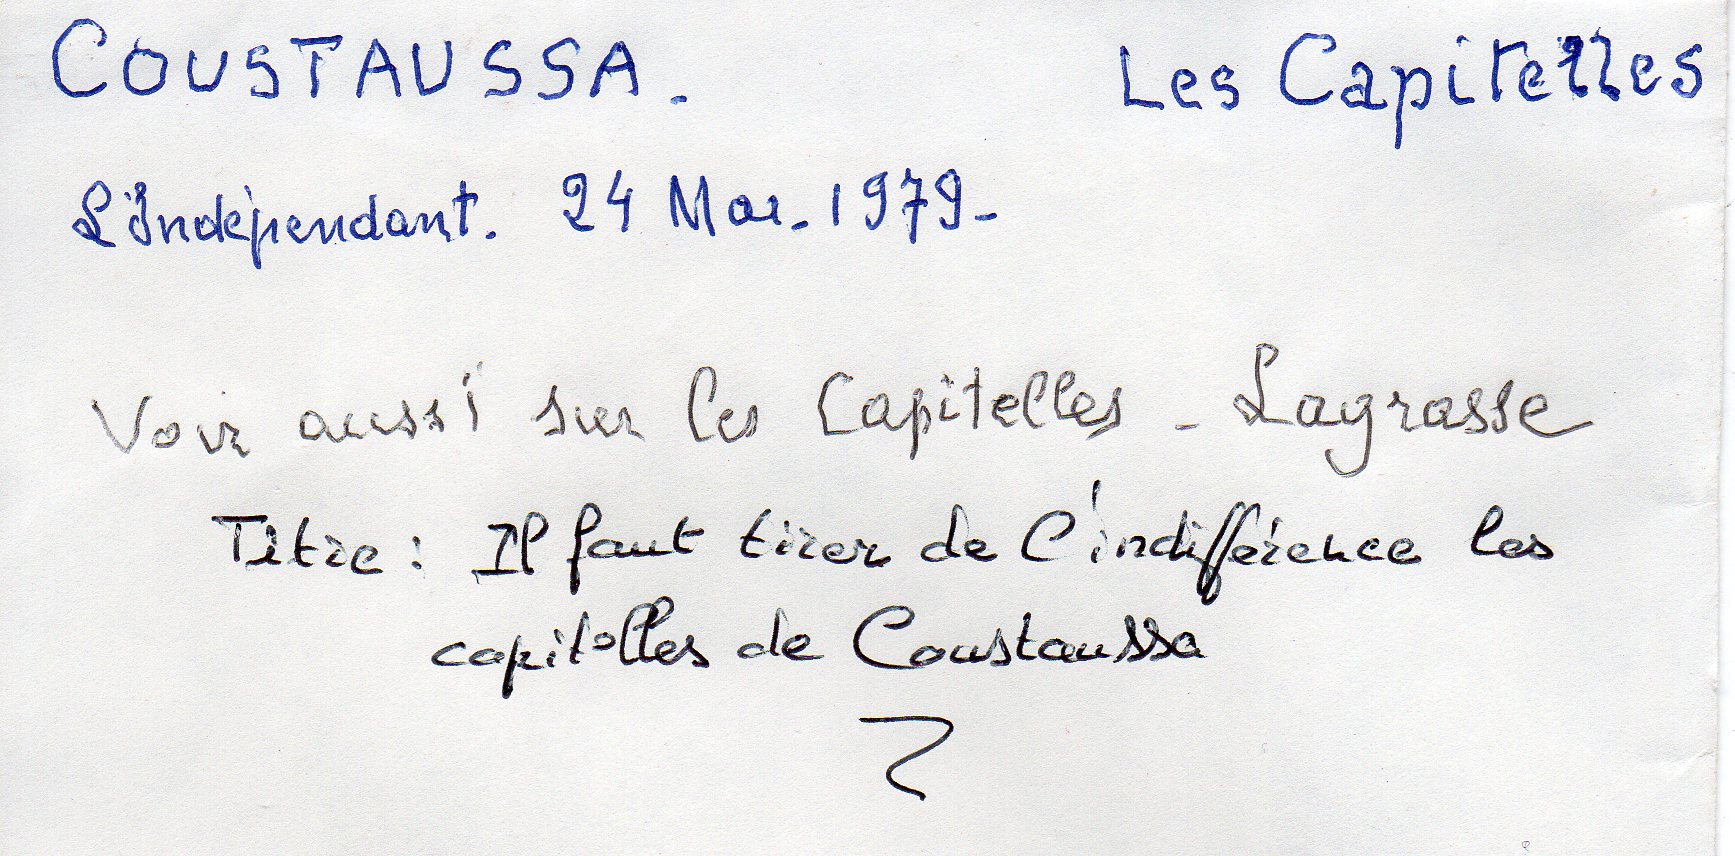 COUSTAUSSA. Les Capitelles
L'Indépendant. 24 Mar. 1979-
Voir aussi sur les Capitelles - Lagrasse
Titre : Il faut tirer de l'indifférence les
capitelles de Coustaussa